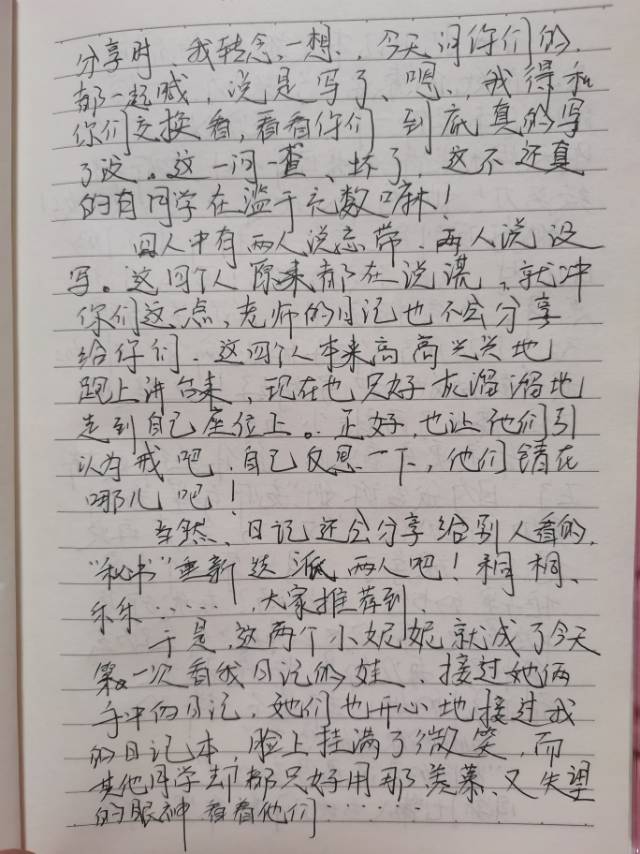 分享时、我转念一想、今天问你们的、
都一起喊，说是写了、嗯、我得和
你们交换看，看看你们到底真的写
了没。这一问一查、坏了、这不还真
的有同学在滥于充数嘛！
四人中有两人说忘带、两人说没
写。这四个人原来都在说谎，就冲
你们这一点、老师的日记也不会分享
给你们、这四个人本来高高兴兴地
跑上讲台来、现在也只好灰溜溜地
走到自己座位上。正好，也让他们引
以为戒吧、自己反思一下，他们错在
哪儿吧！
当然、日记还会分享给别人看的，
“秘书”重新选派两人吧！桐桐、
乐乐……，大家推荐到、
于是，这两个小妮妮就成了今天
第一次看我日记的娃、接过她俩
手中的日记，她们也开心地接过我
的日记本，脸上挂满了微笑，而
其他同学却都只好用那羡慕、又失望
的眼神看着他们……